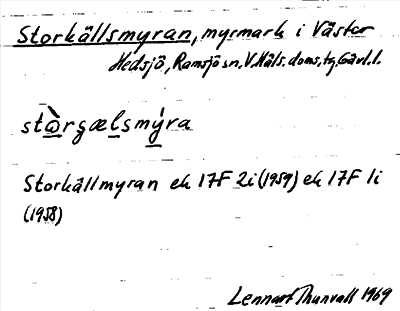 Storkällsmyran, myrmark i Väster
Hedsjö, Ramsjö sn. V. Häls. doms. tg, Gävl. l.
stȯ̀rgælsmýra
Storkällmyran ek 17F 2i (1959) ek 17F 1i
(1958)
Lennart Thunvall 1969